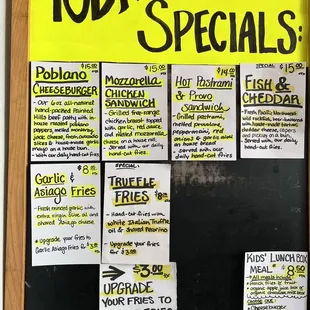 TODAY
SPECIALS:
$15.00
Poblano
CHEESEBURGER
- Our 6oz all-natural
hand-made Painted
Hills beef patty with in-
house roasted poblano
peppers, melted monterey
jack cheese, fresh avocado
slices & house-made garlic
mayo on a house bun
- With our daily hand-cut fries.
$15.00
Mozzarella
CHICKEN
SANDWICH
- Grilled free-range
chicken breast topped
with garlic, red sauce
and melted mozzarella
cheese on a house
- Served with our daily
hand-cut fries.
$14.00
Hot Pastrami
& Provo
Sandwich
- Grilled pastrami,
melted provolone,
pepperoncini, red
onions & garlic mayo
on house bread
- Served with our daily
hand-cut fries
SPECIAL
$15.00
FISH &
CHEDDAR
- Fresh Pacific Northwest
wild rockfish, beer battered
with house-made tartar,
cheddar cheese,
and pickles on a bun.
- Served with our daily
hand-cut fries.
Garlic &
$8
Asiago Fries
- Fresh minced garlic with
extra virgin olive oil and
shaved Asiago cheese
• upgrade your fries to
Garlic Asiago Fries for
$3.00
SPECIAL:
TRUFFLE
FRIES
$8
- Hand-cut fries with
White Italian Truffle
oil & shaved Pecorino
Upgrade your fries
for $3.00
→ $3.00
UPGRADE
YOUR FRIES TO
KIDS' LUNCH BOX
MEAL*
$8.50
- All meals include
french fries or fruit
organic apple juice box or
organic chocolate milk box
choose one:
• Cheeseburger